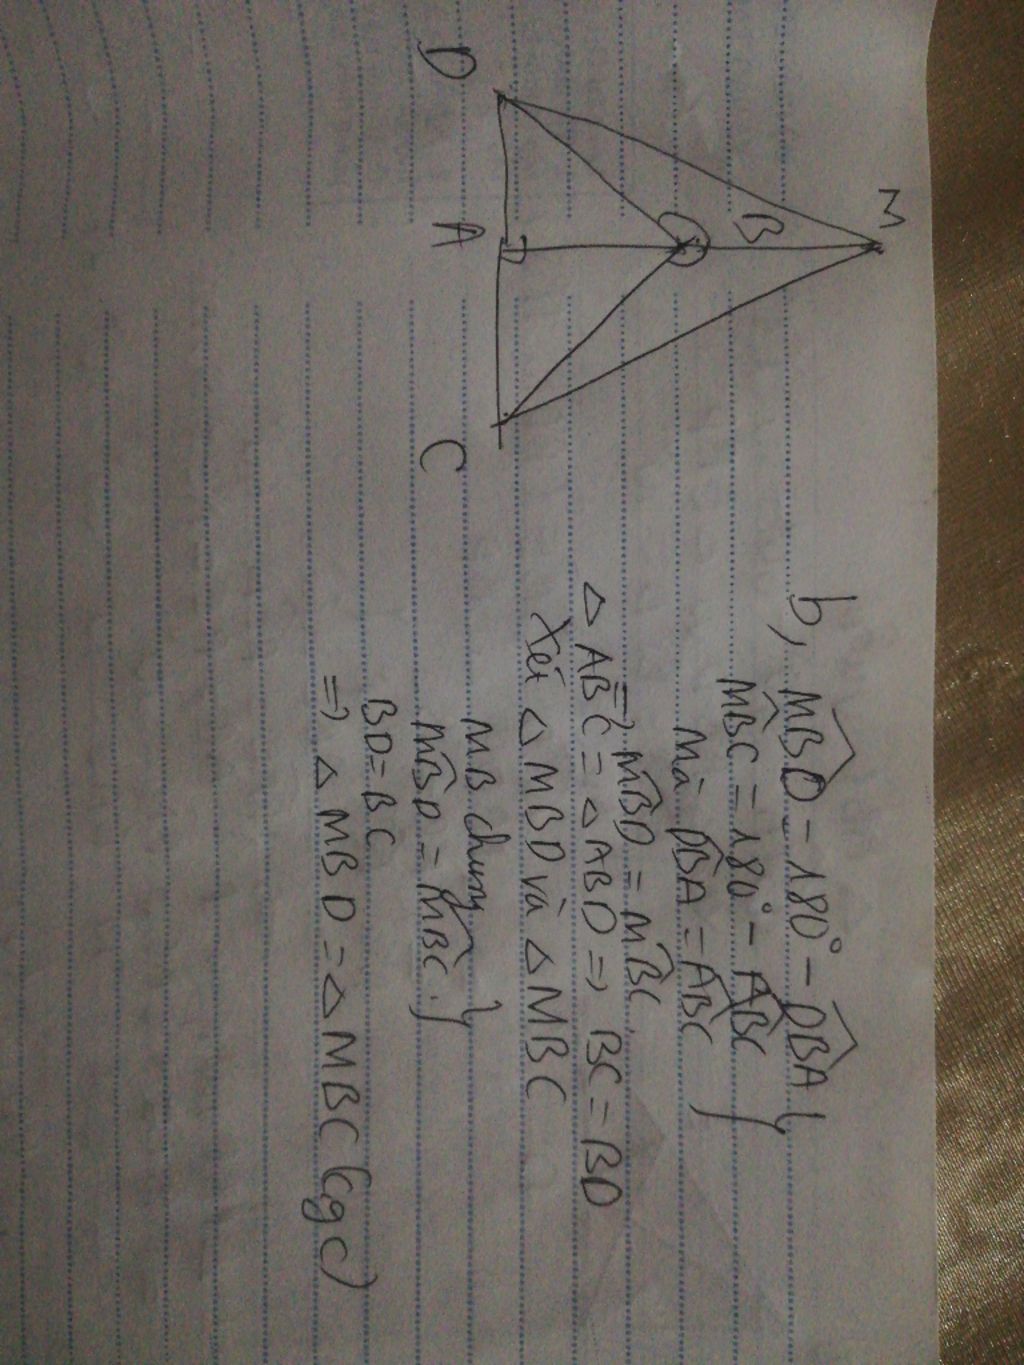 D
A
C
B
M
b, MBD̂ - 180° - DBÂ }
MBĈ = 180° - ABĈ
Mà DBÂ = ABĈ }
=> MBD̂ = MBĈ.
△ ABC = △ ABD => BC = BD
Xét △ MBD và △ MBC
MB chung }
MBD̂ = MBĈ. }
BD = BC
=> △ MBD = △ MBC (cgc)